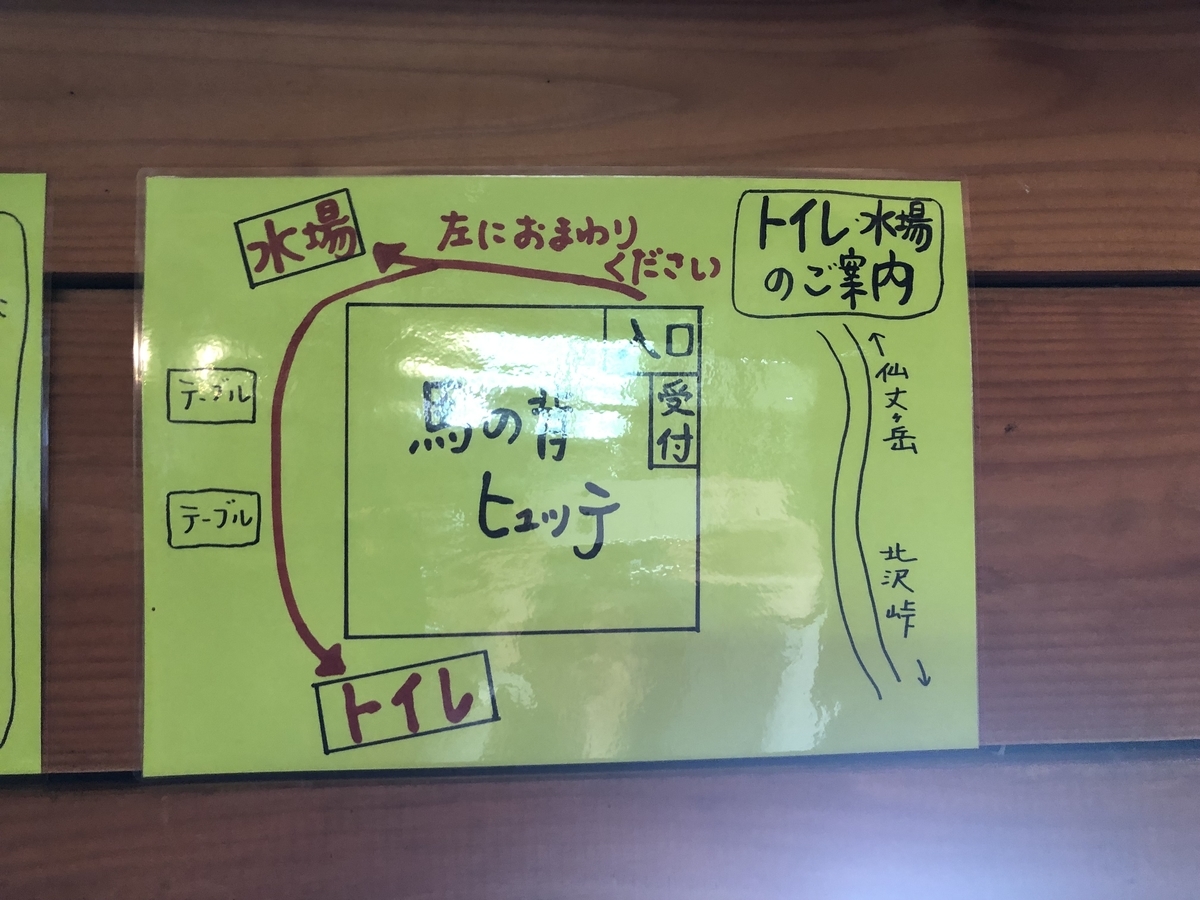 トイレ・水場
のご案内
水場
左におまわり
ください
入口
受付
馬の背
ヒュッテ
テーブル
テーブル
トイレ
↑仙丈ヶ岳
北沢峠↓